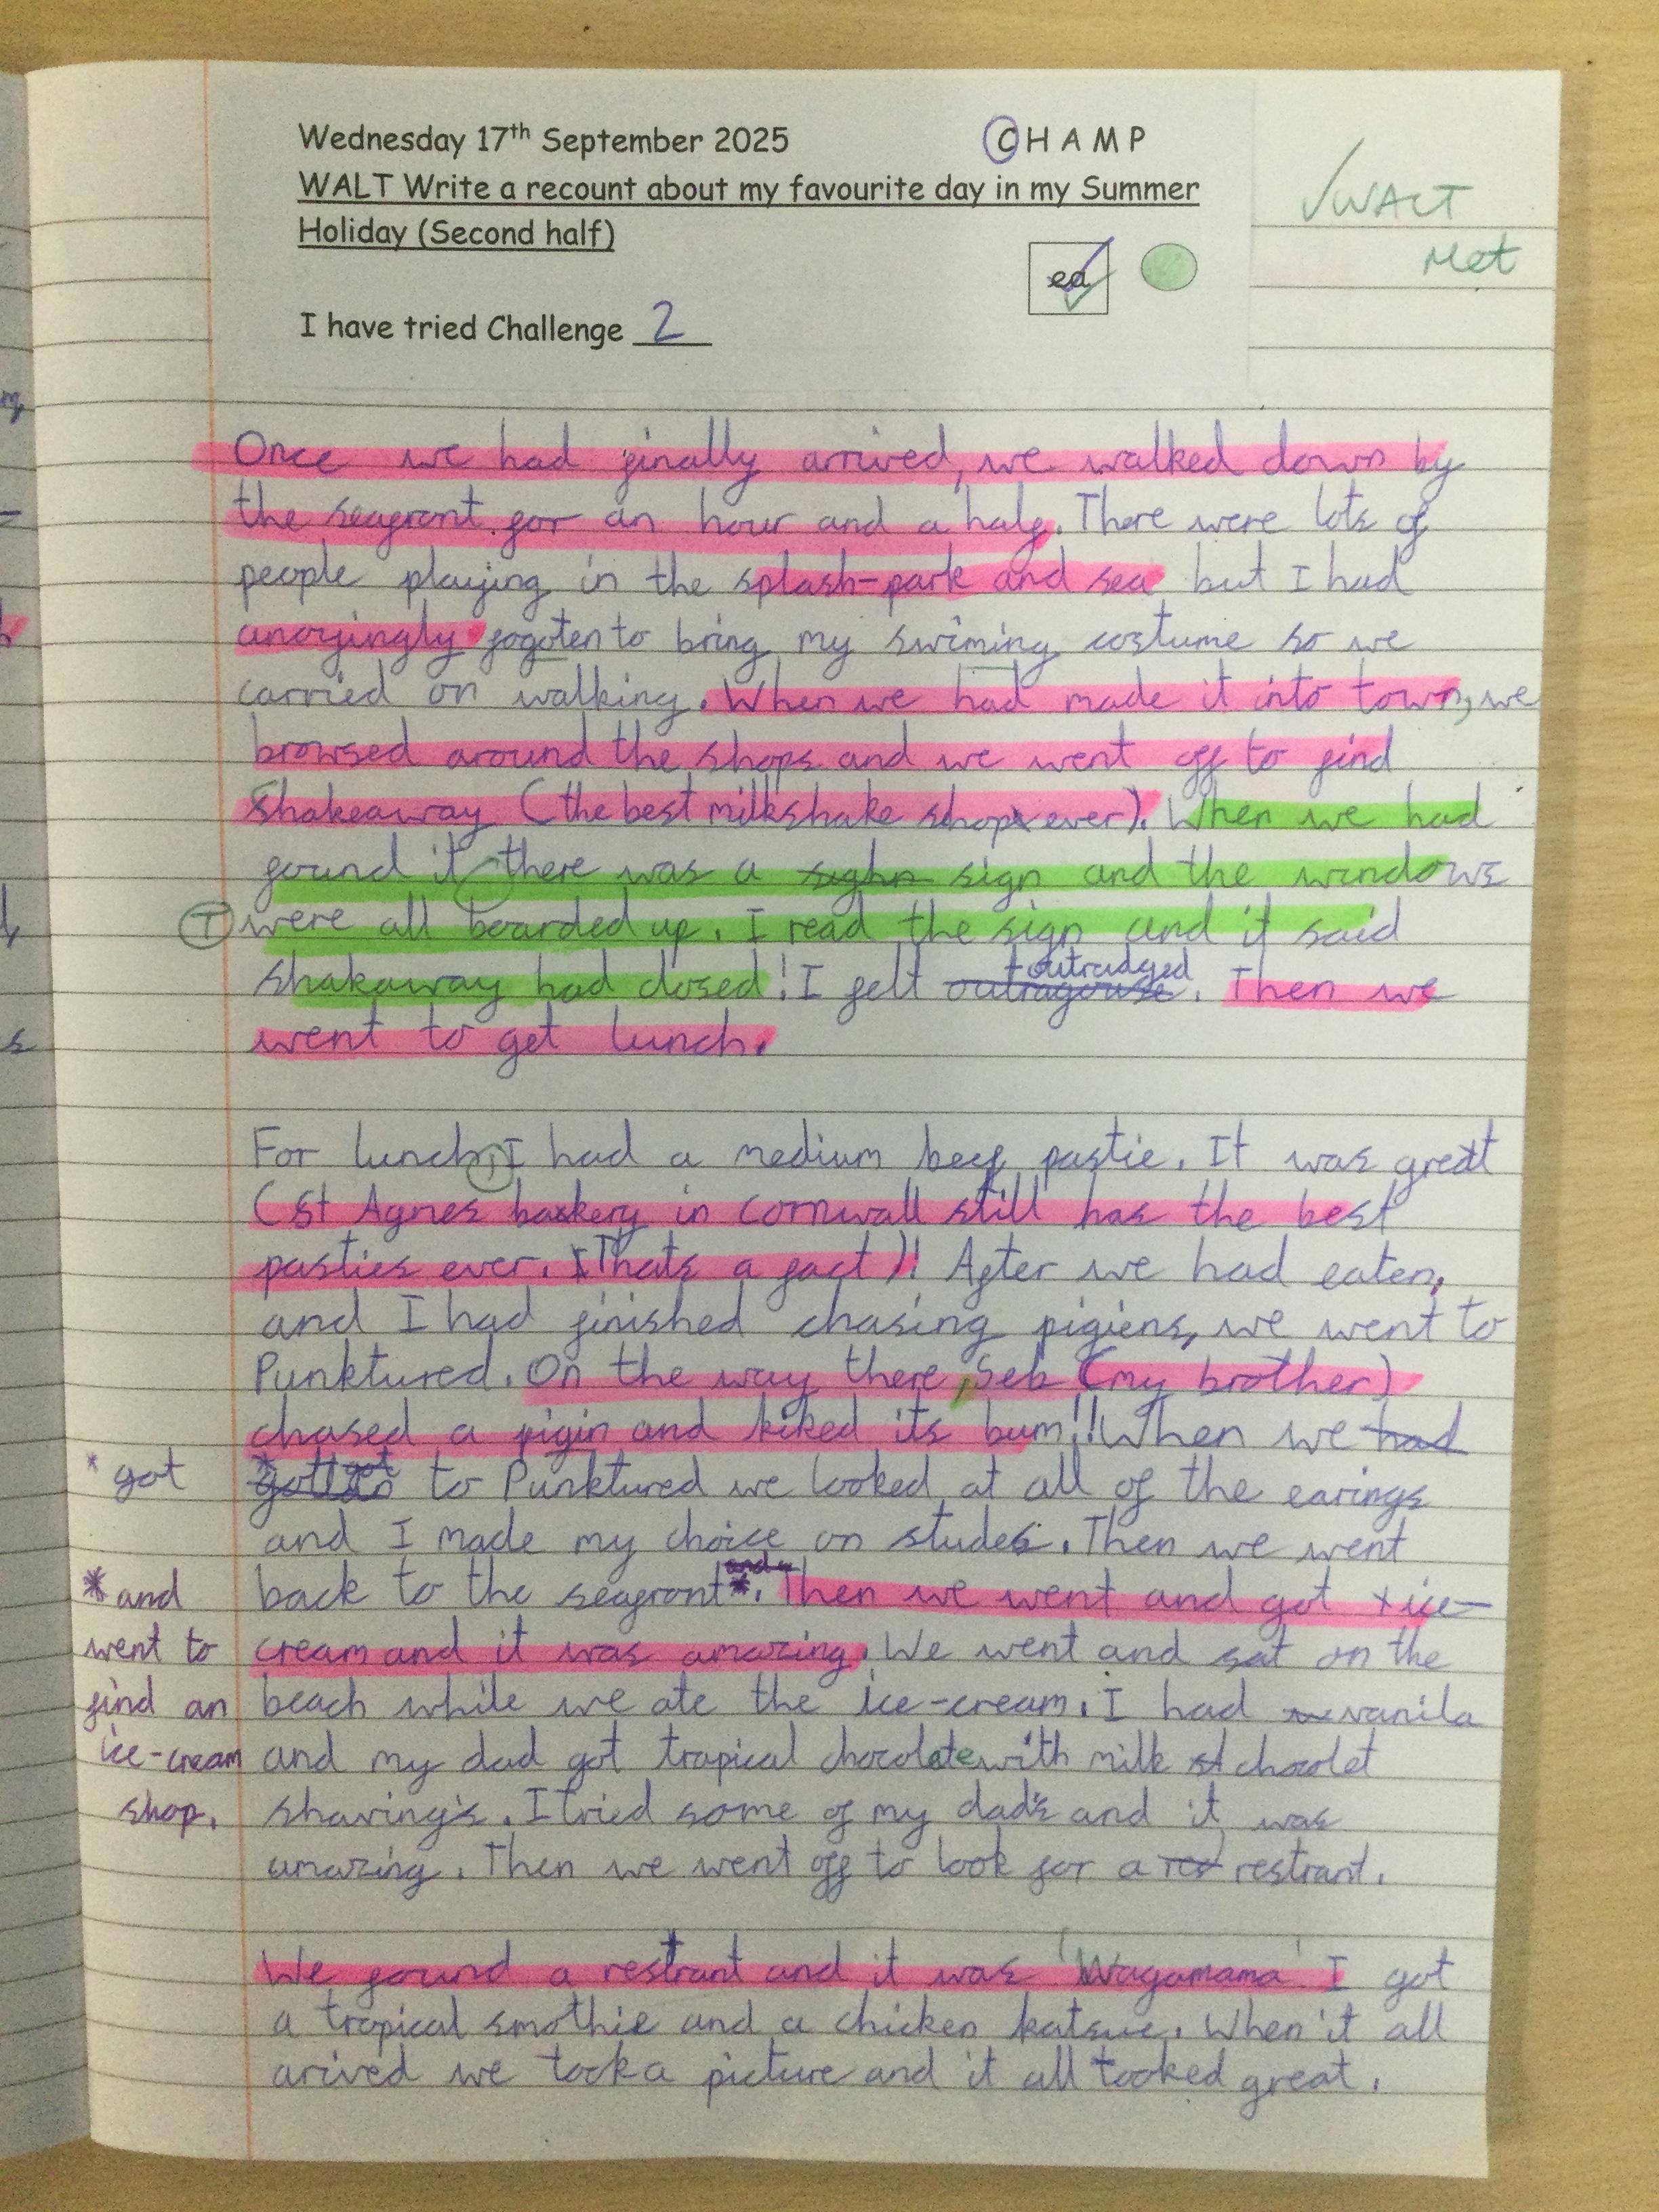 Wednesday 17th September 2025 C H A M P
WALT Write a recount about my favourite day in my Summer
Holiday (Second half)
✓WALT
Met
ea
I have tried Challenge 2
Once we had finally arrived, we walked down by
the seafront for an hour and a half. There were lots of
people playing in the splash-park and sea but I had
anoyingly fogoten to bring my swiming costume so we
carried on walking. When we had made it into town, we
browsed around the shops and we went off to find
Shakeaway (the best milkshake shop ever). When we had
found it there was a sighn sign and the windows
T were all boarded up. I read the sign and it said
shakaway had closed! I felt outragouse outradged. Then we
went to get lunch.
For lunch, I had a medium beef pastie. It was great
(st Agnes bakery in cornwall still has the best
pasties ever. Thats a fact)! After we had eaten,
and I had finished chasing pigiens, we went to
Punktured. On the way there, Seb (my brother)
chased a pigin and kiked its bum!! When we had
* got
to Punktured we looked at all of the earings
and I made my choice on studes. Then we went
back to the seafront*. Then we went and got ice-
* and
went to
find an
ice-cream
shop.
cream and it was amazing. We went and sat on the
beach while we ate the ice-cream. I had vanila
and my dad got trapical chocolate with milk chocolet
shaving's. I tried some of my dad's and it was
amazing. Then we went off to look for a restrant.
We found a restrant and it was 'Wagamama' I got
a tropical smothie and a chicken katsue. When it all
arived we took a picture and it all looked great.